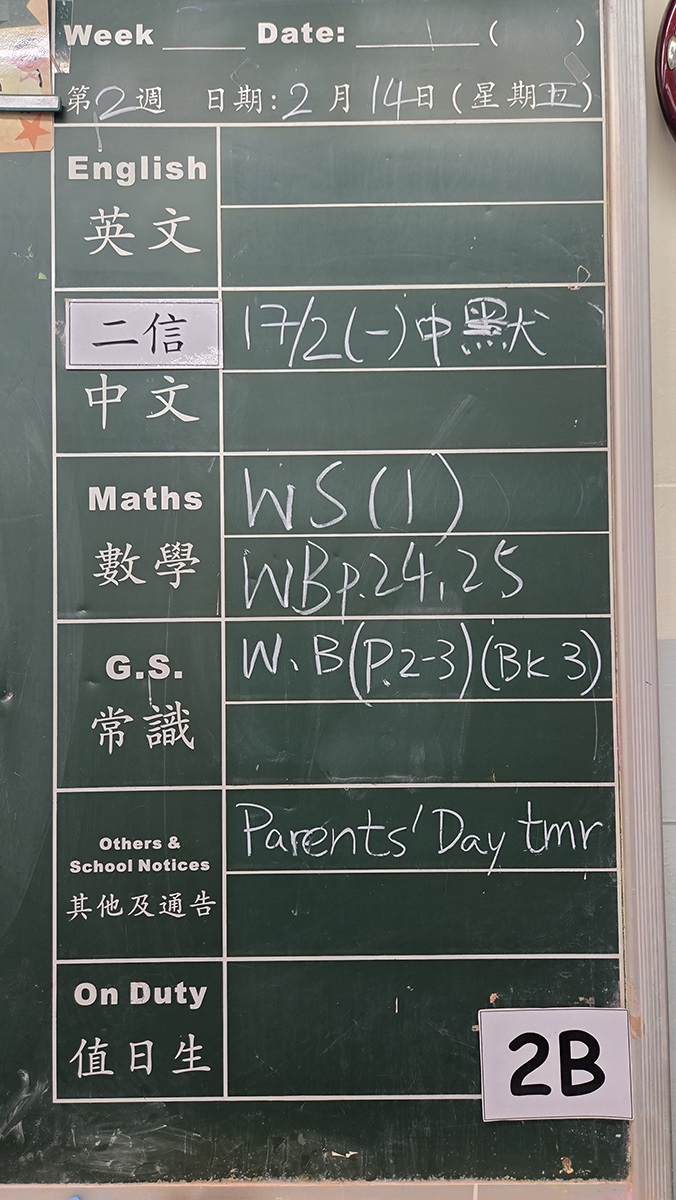 Week ____ Date: ______ ( )
第2週 日期:2月14日(星期五)
English
英文
二信
17/2(一)中默
中文
Maths
WS(1)
數學
WBp.24,25
G.S.
W.B(P.2-3)(Bk 3)
常識
Others &
School Notices
Parents' Day tmr
其他及通告
On Duty
值日生
2B